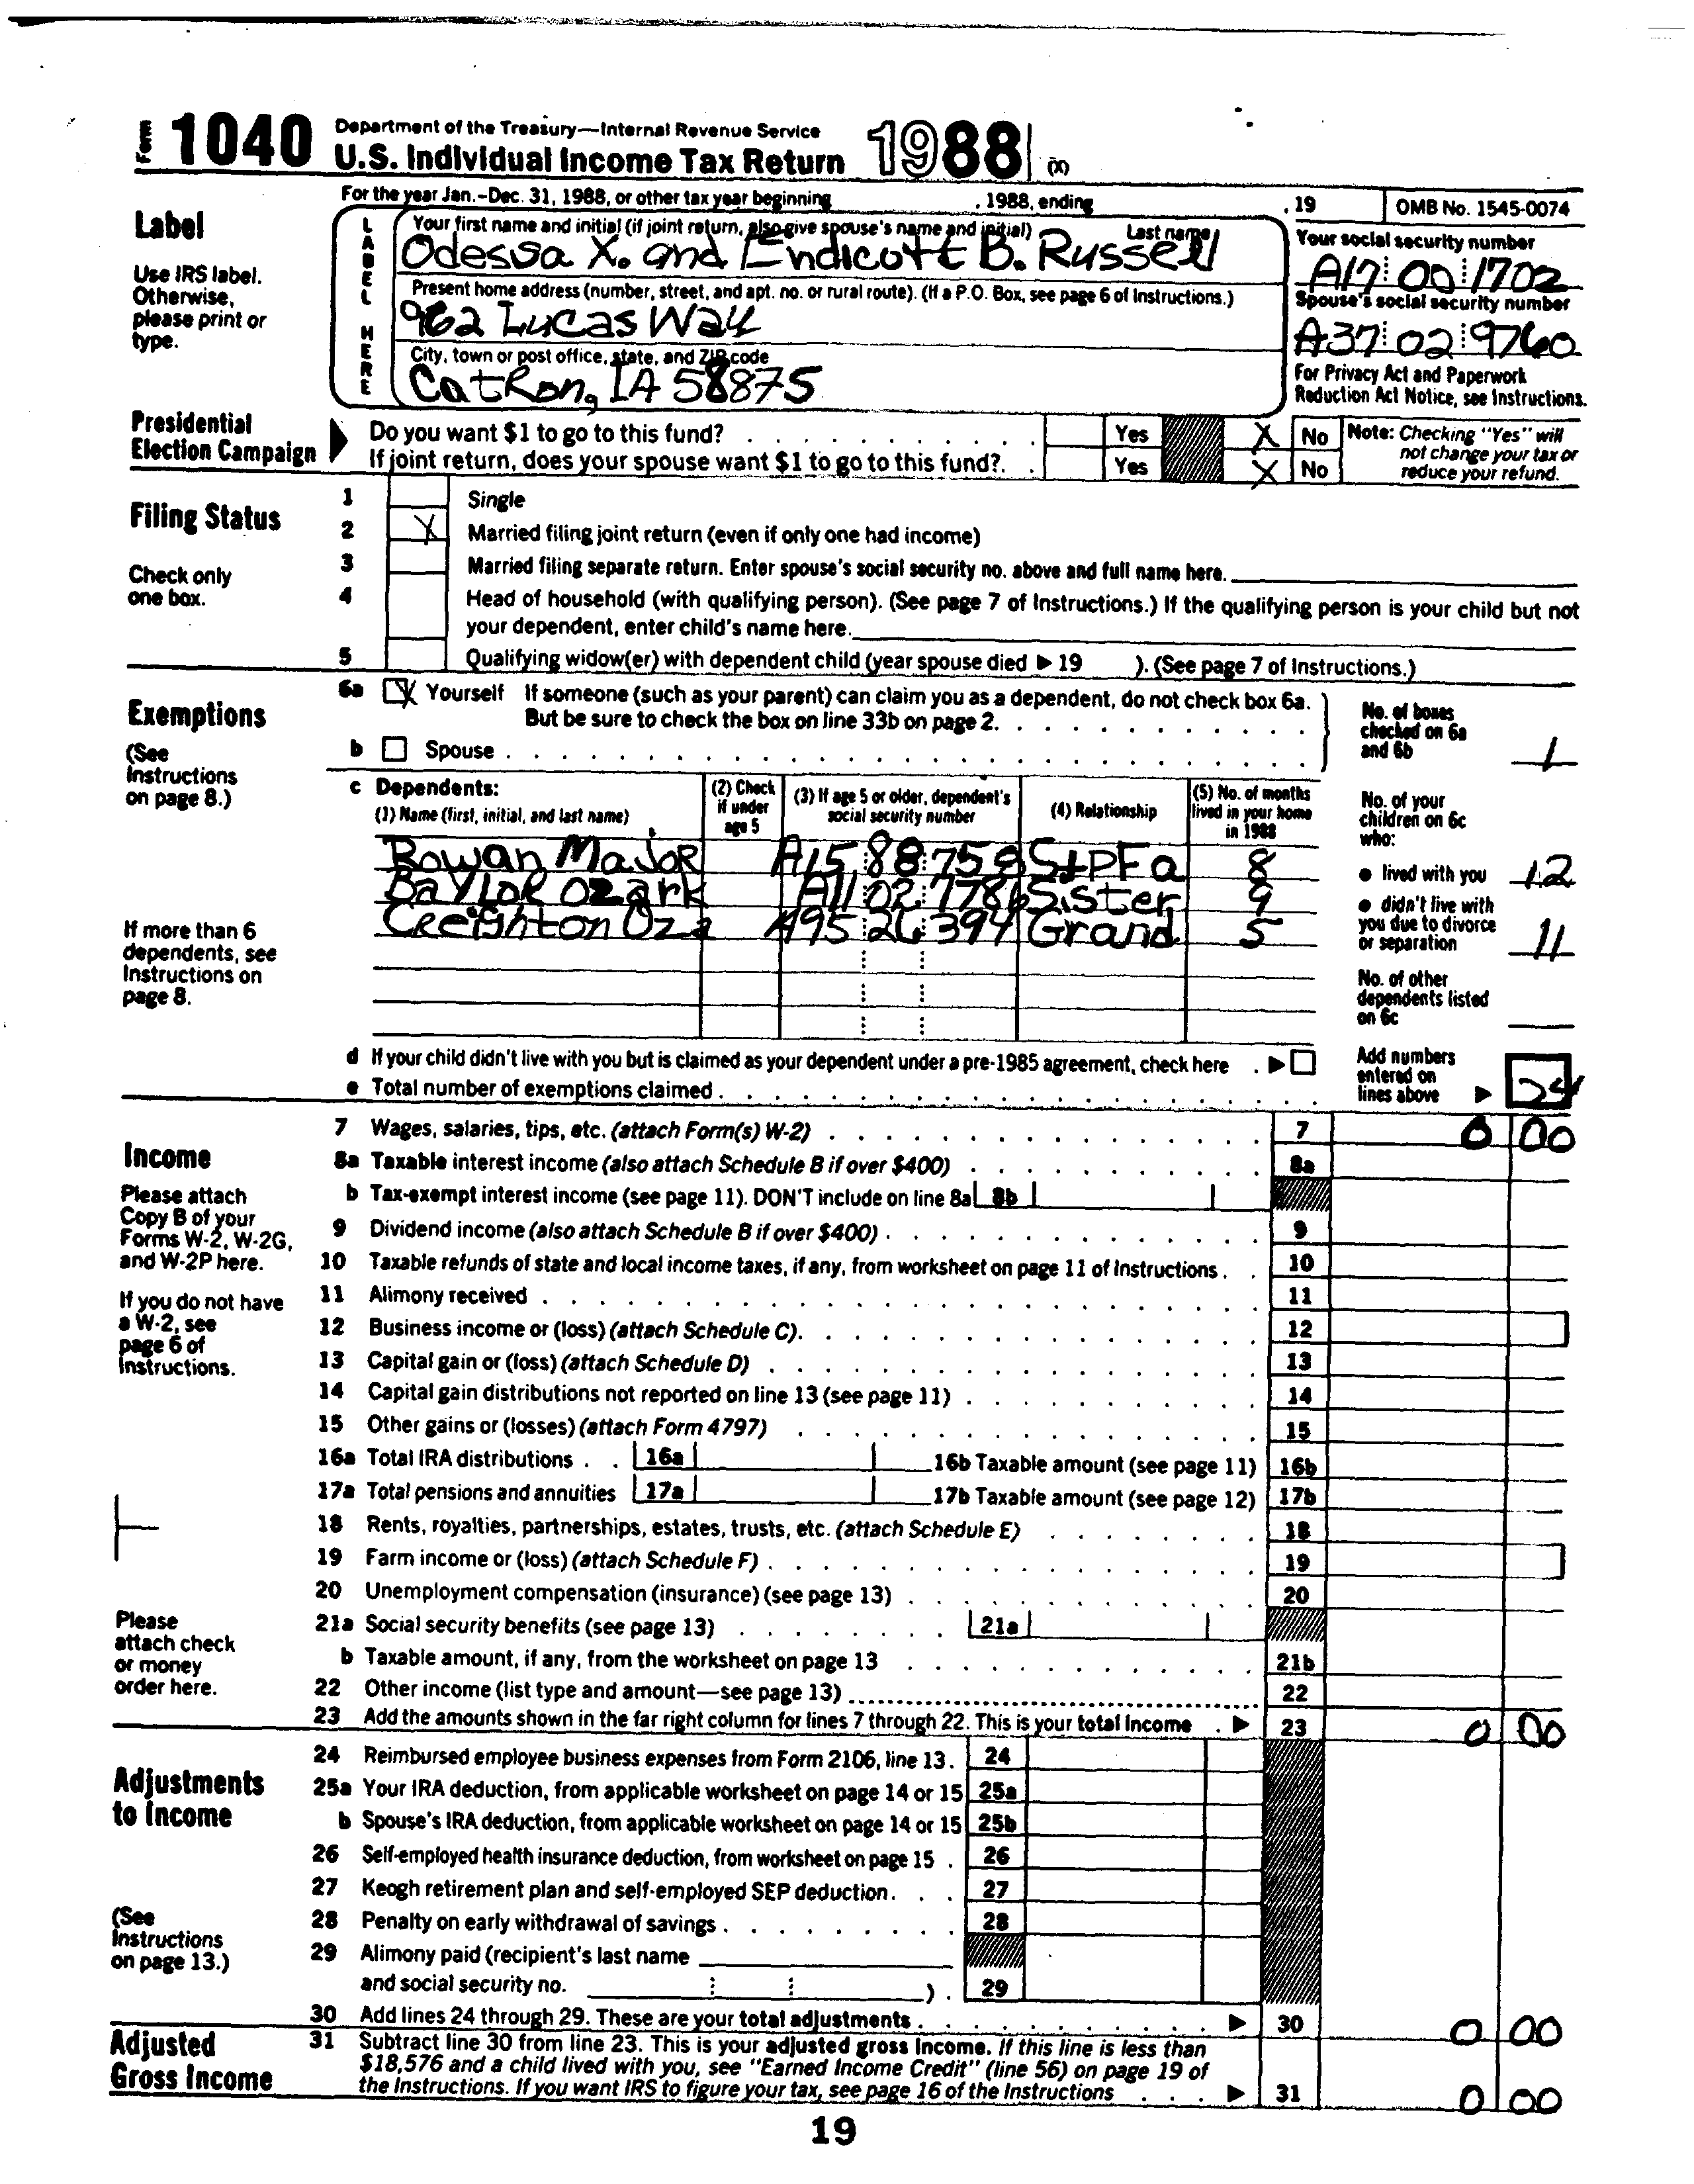 Form 1040 Department of the Treasury—Internal Revenue Service
U.S. Individual Income Tax Return 1988 (X)
For the year Jan.–Dec. 31, 1988, or other tax year beginning , 1988, ending , 19 OMB No. 1545-0074
Label
Use IRS label. Otherwise, please print or type.
LABEL HERE
Your first name and initial (if joint return, also give spouse's name and initial) Last name
Odessa X. and Endicott B. Russell
Your social security number
A17 00 1702
Present home address (number, street, and apt. no. or rural route). (If a P.O. Box, see page 6 of Instructions.)
962 Lucas Way
Spouse's social security number
A37 02 9760
City, town or post office, state, and ZIP code
Catron, IA 58875
For Privacy Act and Paperwork Reduction Act Notice, see Instructions.
Presidential Election Campaign
Do you want $1 to go to this fund? Yes X No
If joint return, does your spouse want $1 to go to this fund? Yes X No
Note: Checking "Yes" will not change your tax or reduce your refund.
Filing Status
Check only one box.
1 Single
2 X Married filing joint return (even if only one had income)
3 Married filing separate return. Enter spouse's social security no. above and full name here.
4 Head of household (with qualifying person). (See page 7 of Instructions.) If the qualifying person is your child but not
your dependent, enter child's name here.
5 Qualifying widow(er) with dependent child (year spouse died ▶ 19 ). (See page 7 of Instructions.)
Exemptions
(See Instructions on page 8.)
6a X Yourself If someone (such as your parent) can claim you as a dependent, do not check box 6a.
But be sure to check the box on line 33b on page 2.
b Spouse
No. of boxes checked on 6a and 6b 1
c Dependents:
(1) Name (first, initial, and last name) (2) Check if under age 5 (3) If age 5 or older, dependent's social security number (4) Relationship (5) No. of months lived in your home in 1988
Rowan Major A15 88 758 StpFa 8
Baylor Ozark A11 02 7786 Sister 9
Creighton Oza A95 26 394 Grand 5
No. of your children on 6c who:
● lived with you 12
● didn't live with you due to divorce or separation 11
No. of other dependents listed on 6c
If more than 6 dependents, see Instructions on page 8.
d If your child didn't live with you but is claimed as your dependent under a pre-1985 agreement, check here ▶
e Total number of exemptions claimed
Add numbers entered on lines above ▶ 24
Income
Please attach Copy B of your Forms W-2, W-2G, and W-2P here.
If you do not have a W-2, see page 6 of Instructions.
Please attach check or money order here.
7 Wages, salaries, tips, etc. (attach Form(s) W-2) 7 0 00
8a Taxable interest income (also attach Schedule B if over $400) 8a
b Tax-exempt interest income (see page 11). DON'T include on line 8a 8b
9 Dividend income (also attach Schedule B if over $400) 9
10 Taxable refunds of state and local income taxes, if any, from worksheet on page 11 of Instructions 10
11 Alimony received 11
12 Business income or (loss) (attach Schedule C) 12
13 Capital gain or (loss) (attach Schedule D) 13
14 Capital gain distributions not reported on line 13 (see page 11) 14
15 Other gains or (losses) (attach Form 4797) 15
16a Total IRA distributions 16a 16b Taxable amount (see page 11) 16b
17a Total pensions and annuities 17a 17b Taxable amount (see page 12) 17b
18 Rents, royalties, partnerships, estates, trusts, etc. (attach Schedule E) 18
19 Farm income or (loss) (attach Schedule F) 19
20 Unemployment compensation (insurance) (see page 13) 20
21a Social security benefits (see page 13) 21a
b Taxable amount, if any, from the worksheet on page 13 21b
22 Other income (list type and amount—see page 13) 22
23 Add the amounts shown in the far right column for lines 7 through 22. This is your total income ▶ 23 0 00
Adjustments to Income
(See Instructions on page 13.)
24 Reimbursed employee business expenses from Form 2106, line 13 24
25a Your IRA deduction, from applicable worksheet on page 14 or 15 25a
b Spouse's IRA deduction, from applicable worksheet on page 14 or 15 25b
26 Self-employed health insurance deduction, from worksheet on page 15 26
27 Keogh retirement plan and self-employed SEP deduction 27
28 Penalty on early withdrawal of savings 28
29 Alimony paid (recipient's last name
and social security no. ) 29
30 Add lines 24 through 29. These are your total adjustments ▶ 30 0 00
Adjusted Gross Income
31 Subtract line 30 from line 23. This is your adjusted gross income. If this line is less than
$18,576 and a child lived with you, see "Earned Income Credit" (line 56) on page 19 of
the Instructions. If you want IRS to figure your tax, see page 16 of the Instructions ▶ 31 0 00
19